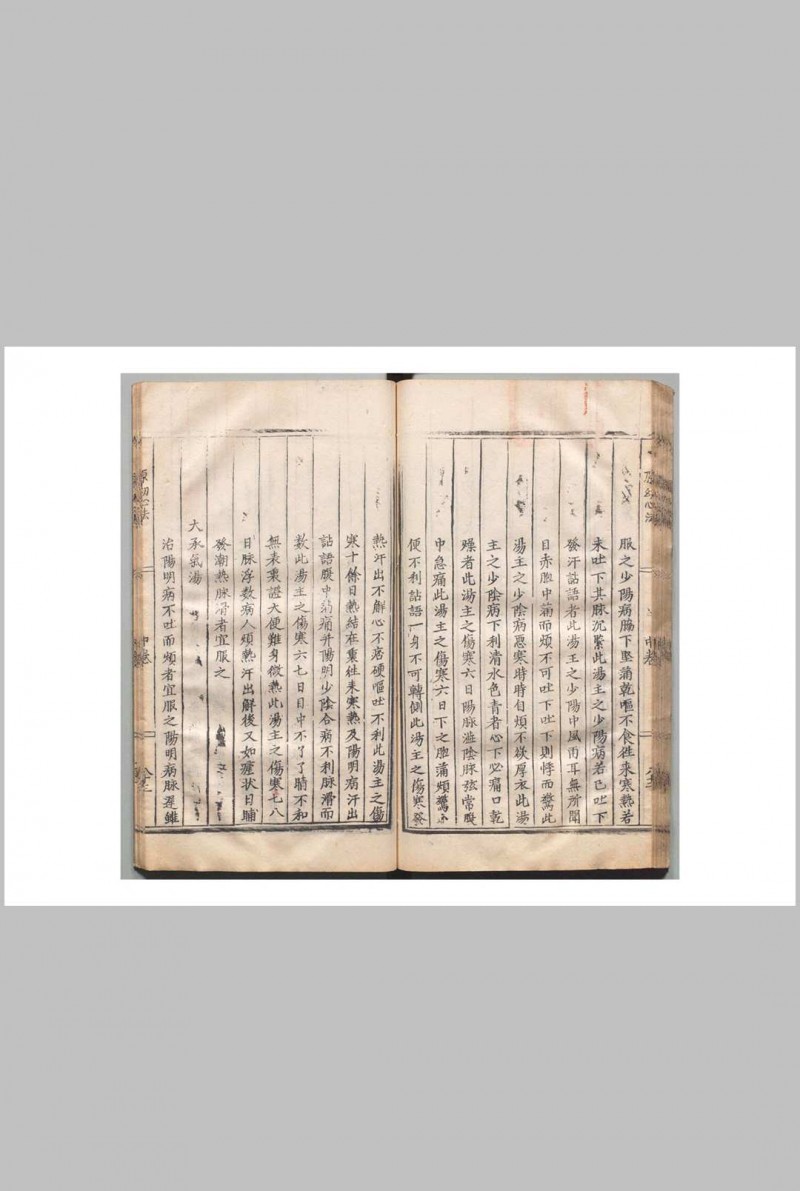 服之少陽病脇下堅滿乾嘔不食徃来寒熱若
未吐下其脉沉緊此湯主之少陽病若已吐下
發汗詀語者此湯主之少陽中風兩耳無所聞
目赤胷中滿而煩不可吐下吐下則悸而驚此
湯主之少陰病惡寒時時自煩不欲厚衣此湯
主之少陰病下利清水色青者心下必痛口乾
躁者此湯主之傷寒六日陽脉澁陰脉弦常腹
中急痛此湯主之傷寒六日下之胷滿煩驚小
便不利詀語一身不可轉側此湯主之傷寒發
熱汗出不解心不痞硬嘔吐不利此湯主之傷
寒十餘日熱結在裏徃来寒熱及陽明病汗出
詀語腹中滿痛并陽明少陰合病不利脉滑而
数此湯主之傷寒六七日目中不了了睛不和
無表裏證大便難身微熱此湯主之傷寒七八
日脉浮数病人煩熱汗出解後又如瘧狀日晡
發潮熱脉滑者宜服之
大承氣湯
治陽明病不吐而煩者宜服之陽明病脉遲雖
中卷